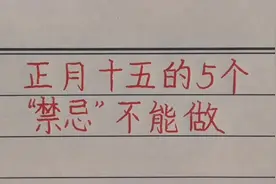 正月十五的5个
“禁忌”不能做